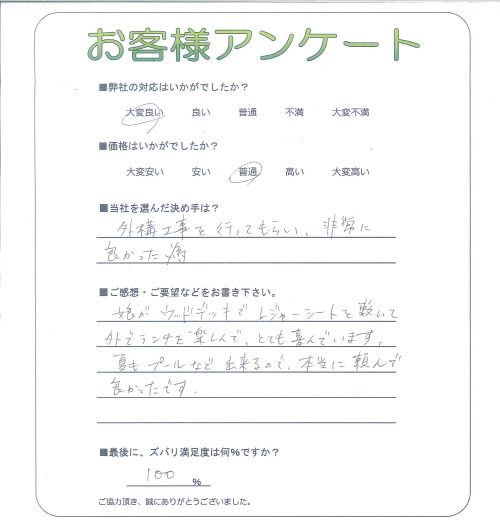 お客様アンケート
■弊社の対応はいかがでしたか?
大変良い 良い 普通 不満 大変不満
■価格はいかがでしたか?
大変安い 安い 普通 高い 大変高い
■当社を選んだ決め手は?
外構工事を行ってもらい、非常に
良かった為
■ご感想・ご要望などをお書き下さい。
娘がウッドデッキでレジャーシートを敷いて
外でランチを楽しんで、とても喜んでいます。
夏もプールなど出来るので、本当に頼んで
良かったです.
■最後に、ズバリ満足度は何%ですか?
100 %
ご協力頂き、誠にありがとうございました。